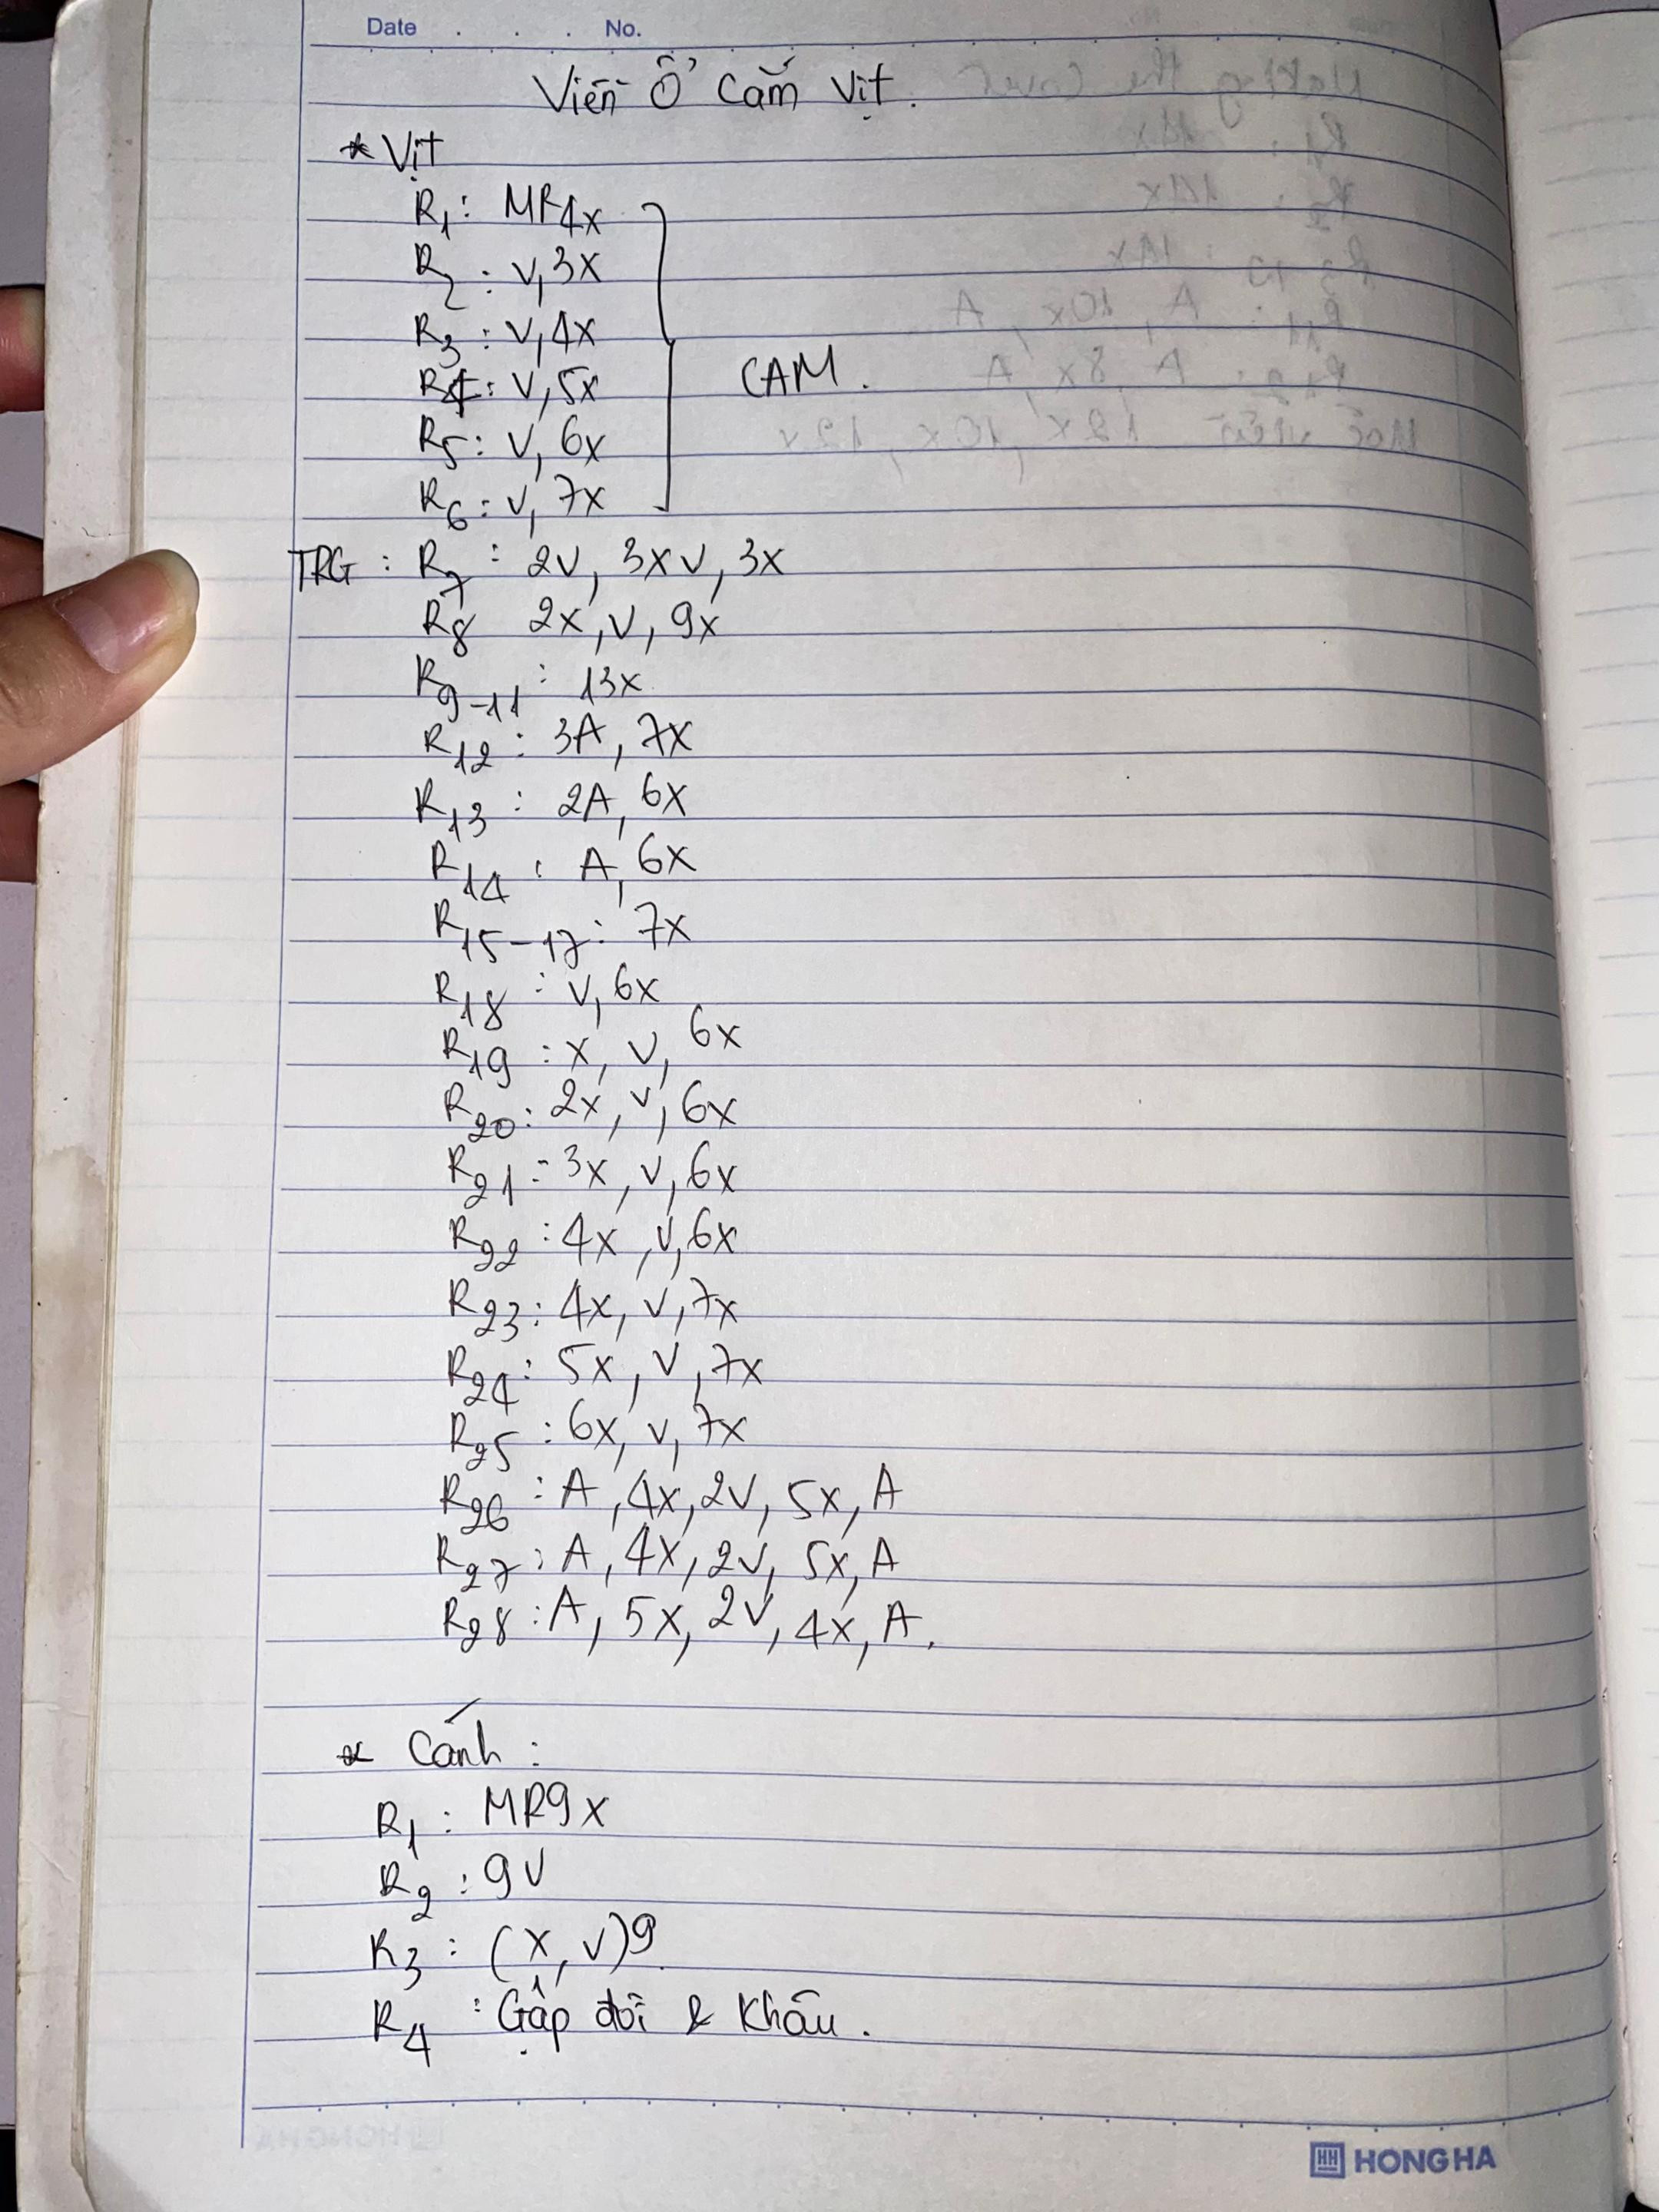 Date . . . No.
Viền Ổ Cắm Vịt.
* Vịt
R1: MR4x
R2: V, 3x
R3: V, 4x
R4: V, 5x
R5: V, 6x
R6: V, 7x
CAM.
TRG: R7: 2V, 3x V, 3x
R8 2x, V, 9x
R9-11: 13x
R12: 3A, 7x
R13: 2A, 6x
R14: A, 6x
R15-17: 7x
R18: V, 6x
R19: x, V, 6x
R20: 2x, V, 6x
R21: 3x, V, 6x
R22: 4x, V, 6x
R23: 4x, V, 7x
R24: 5x, V, 7x
R25: 6x, V, 7x
R26: A, 4x, 2V, 5x, A
R27: A, 4x, 2V, 5x, A
R28: A, 5x, 2V, 4x, A.
* Cánh:
R1: MR9x
R2: 9V
R3: (x, V)9
R4: Gập đôi & Khâu.
HONG HA